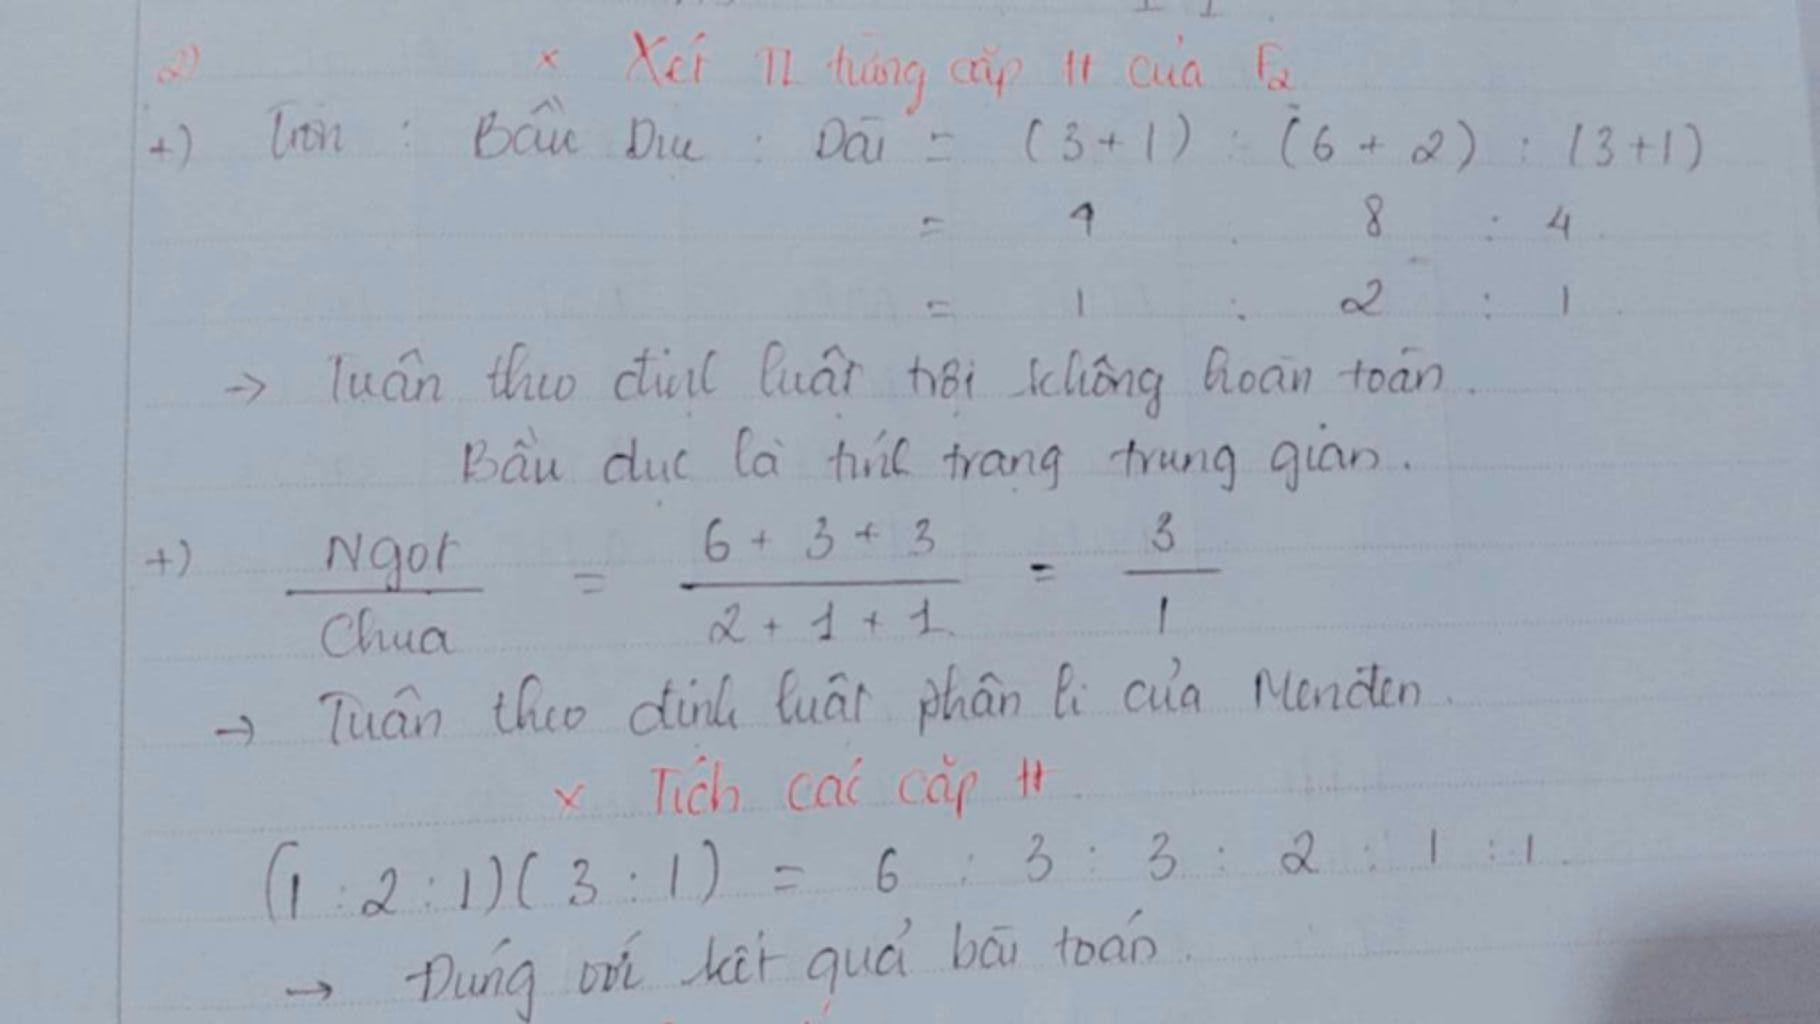 2) × Xét TL từng cặp tt của F2
+) Tròn : Bầu Dục : Dài = (3+1) : (6+2) : (3+1)
= 4 : 8 : 4
= 1 : 2 : 1
→ Tuân theo định luật trội không hoàn toàn.
Bầu dục là tính trạng trung gian.
+) Ngọt / Chua = 6 + 3 + 3 / 2 + 1 + 1 = 3 / 1
→ Tuân theo định luật phân li của Menđen.
× Tích các cặp tt
(1 : 2 : 1)(3 : 1) = 6 : 3 : 3 : 2 : 1 : 1.
→ Đúng với kết quả bài toán.